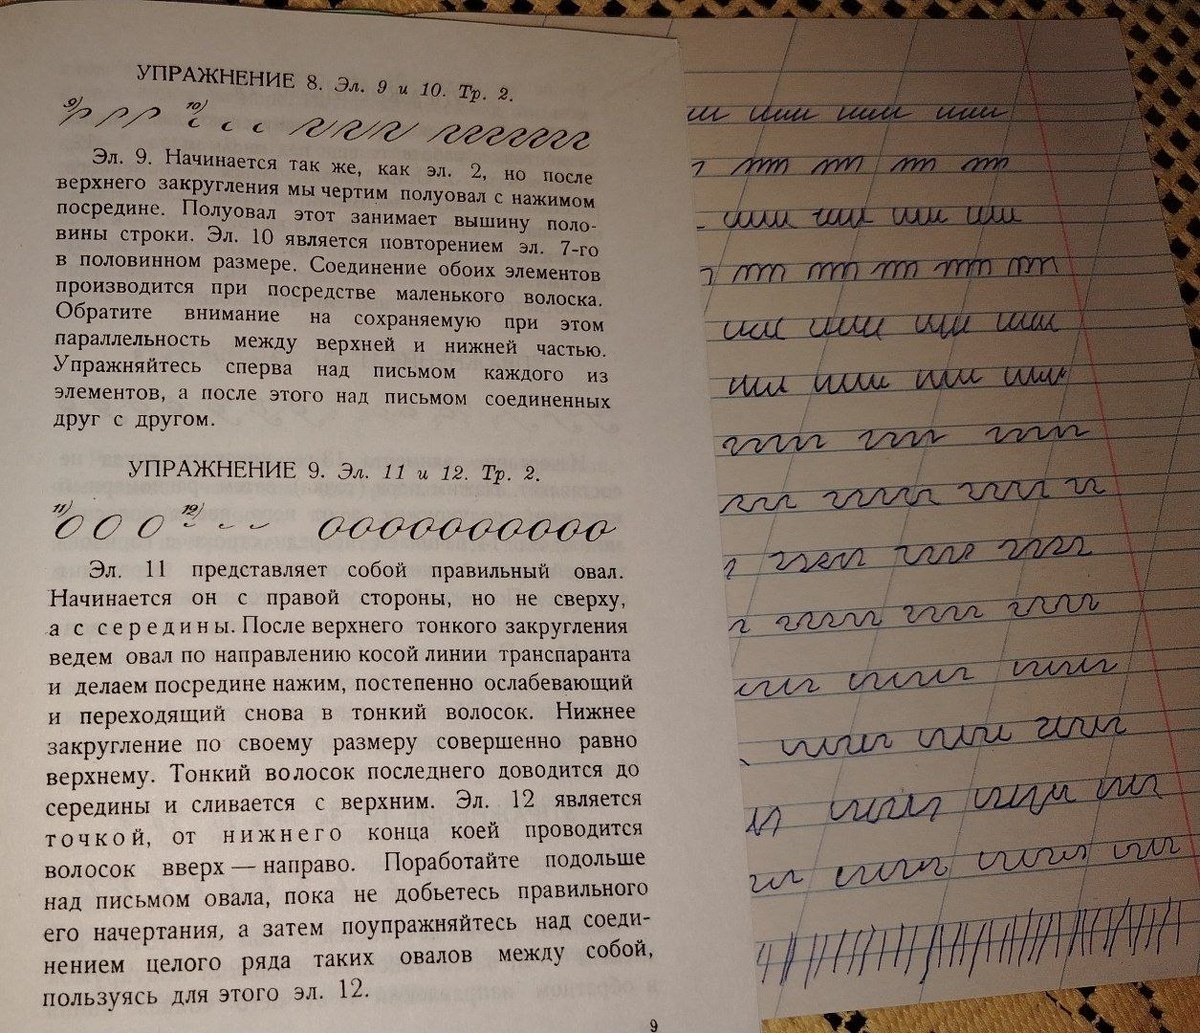 УПРАЖНЕНИЕ 8. Эл. 9 и 10. Тр. 2.
9) 10)
Эл. 9. Начинается так же, как эл. 2, но после
верхнего закругления мы чертим полуовал с нажимом
посредине. Полуовал этот занимает вышину поло-
вины строки. Эл. 10 является повторением эл. 7-го
в половинном размере. Соединение обоих элементов
производится при посредстве маленького волоска.
Обратите внимание на сохраняемую при этом
параллельность между верхней и нижней частью.
Упражняйтесь сперва над письмом каждого из
элементов, а после этого над письмом соединенных
друг с другом.
УПРАЖНЕНИЕ 9. Эл. 11 и 12. Тр. 2.
11) 12)
Эл. 11 представляет собой правильный овал.
Начинается он с правой стороны, но не сверху,
а с середины. После верхнего тонкого закругления
ведем овал по направлению косой линии транспаранта
и делаем посредине нажим, постепенно ослабевающий
и переходящий снова в тонкий волосок. Нижнее
закругление по своему размеру совершенно равно
верхнему. Тонкий волосок последнего доводится до
середины и сливается с верхним. Эл. 12 является
точкой, от нижнего конца коей проводится
волосок вверх — направо. Поработайте подольше
над письмом овала, пока не добьетесь правильного
его начертания, а затем поупражняйтесь над соеди-
нением целого ряда таких овалов между собой,
пользуясь для этого эл. 12.
9